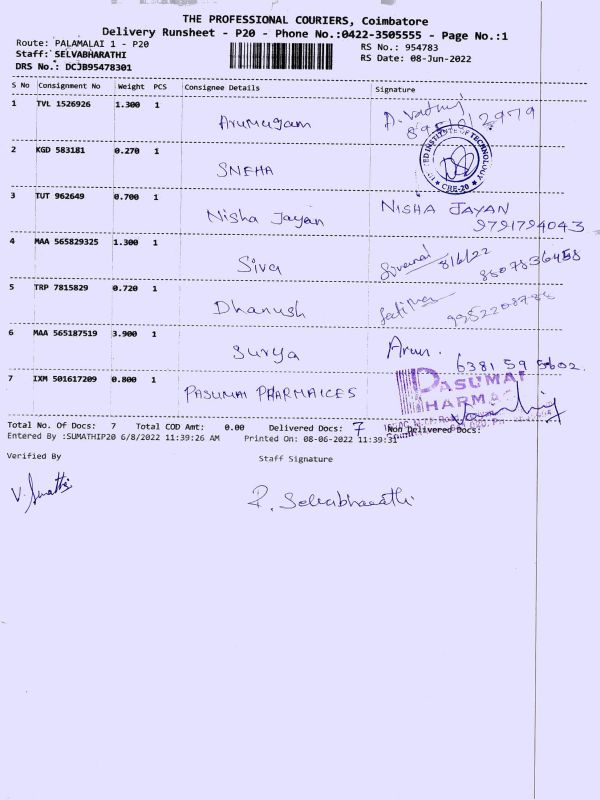 THE PROFESSIONAL COURIERS, Coimbatore
Delivery Runsheet - P20 - Phone No.:0422-3505555 - Page No.:1
Route: PALAMALAI 1 - P20
RS No.: 954783
Staff: SELVABHARATHI
RS Date: 08-Jun-2022
DRS No.: DCJB95478301
S No Consignment No Weight PCS Consignee Details Signature
1 TVL 1526926 1.300 1 Arumugam
2 KGD 583181 0.270 1 SNEHA
INSTITUTE OF TECHNOLOGY
CBE-20
3 TUT 962649 0.700 1 Nisha Jayan NISHA JAYAN
9791794043
4 MAA 565829325 1.300 1 Siva 8/6/22
5 TRP 7815829 0.720 1 Dhanush
6 MAA 565187519 3.900 1 Surya Arun.
6381 59 5602.
7 IXM 501617209 0.800 1 PASUMAI PHARMAICES
PASUMAI
PHARMAC
Total No. Of Docs: 7 Total COD Amt: 0.00 Delivered Docs: 7 Non Delivered Docs:
Entered By :SUMATHIP20 6/8/2022 11:39:26 AM Printed On: 08-06-2022 11:39:31
Verified By Staff Signature
V. Sumathi P. Selvabharathi